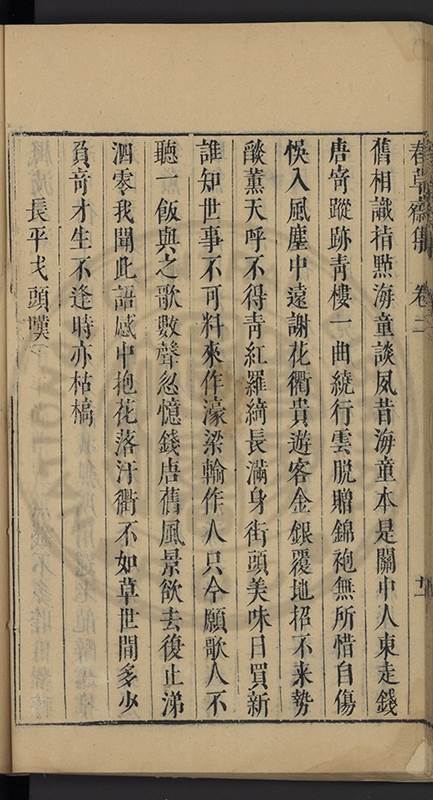 春草齋集 卷二 十一
舊相識指點海童談夙昔海童本是關中人東走錢
唐寄蹤跡靑樓一曲繞行雲脫贈錦袍無所惜自傷
悞入風塵中遠謝花衢貴遊客金銀覆地招不来勢
談薰天呼不得靑紅羅綺長滿身街頭美味日買新
誰知世事不可料來作濠梁輸作人只今願歌人不
聽一飯與之歌數聲忽憶錢唐舊風景欲去復止涕
泗零我聞此語感中抱花落汙衢不如草世間多少
負竒才生不逢時亦枯槁
長平戈頭嘆